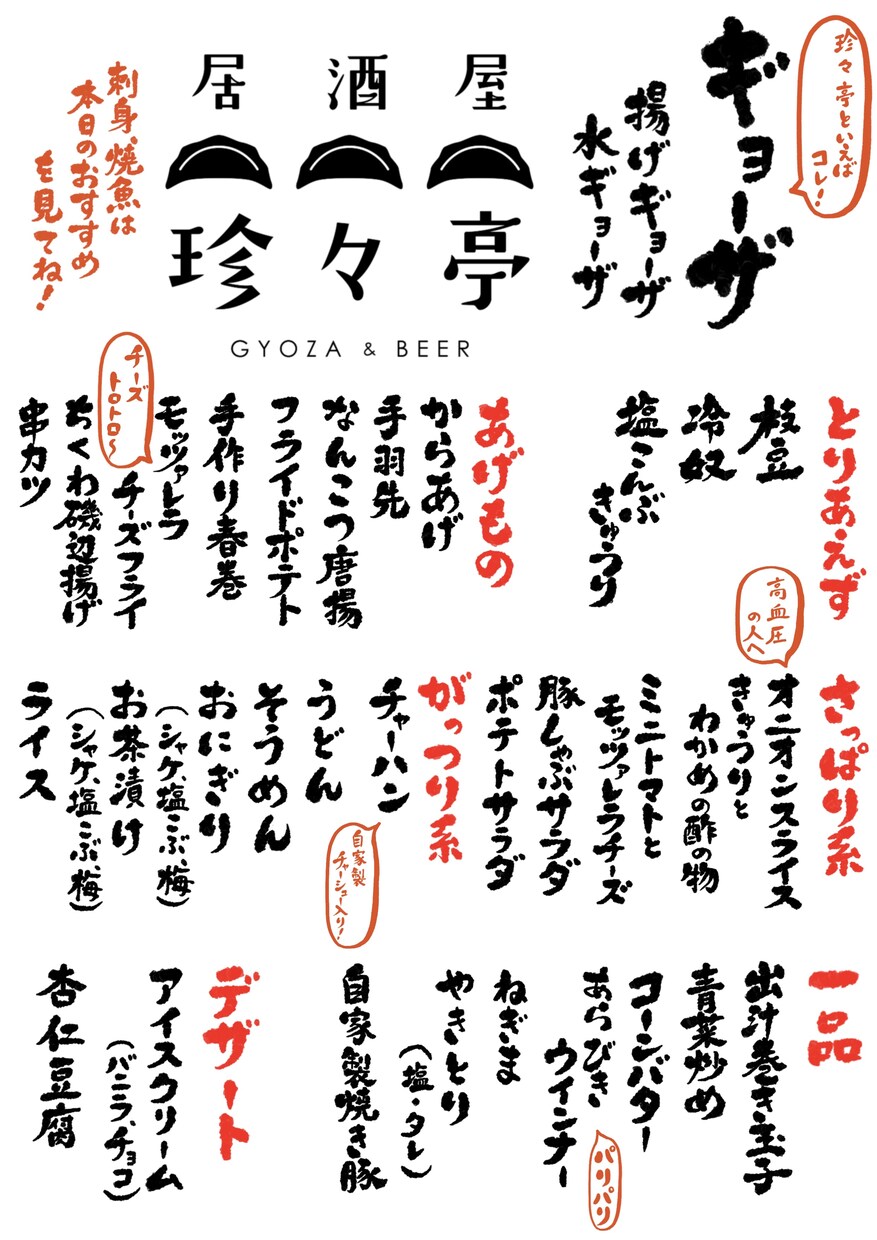 珍々亭といえば
コレ!
ギョーザ
揚げギョーザ
水ギョーザ
居酒屋
珍々亭
GYOZA & BEER
刺身、焼魚は
本日のおすすめ
を見てね!
とりあえず
枝豆
冷奴
塩こんぶ
きゅうり
あげもの
からあげ
手羽先
なんこつ唐揚
フライドポテト
手作り春巻
モッツァレラ
チーズフライ
チーズ
トロトロ〜
ちくわ磯辺揚げ
串カツ
さっぱり系
高血圧
の人へ
オニオンスライス
きゅうりと
わかめの酢の物
ミニトマトと
モッツァレラチーズ
豚しゃぶサラダ
ポテトサラダ
がっつり系
チャーハン
自家製
チャーシュー入り!
うどん
そうめん
おにぎり
(シャケ、塩こぶ、梅)
お茶漬け
(シャケ、塩こぶ、梅)
ライス
一品
出汁巻き玉子
青菜炒め
コーンバター
あらびき
ウインナー
パリパリ
ねぎま
やきとり
(塩・タレ)
自家製焼き豚
デザート
アイスクリーム
(バニラ、チョコ)
杏仁豆腐